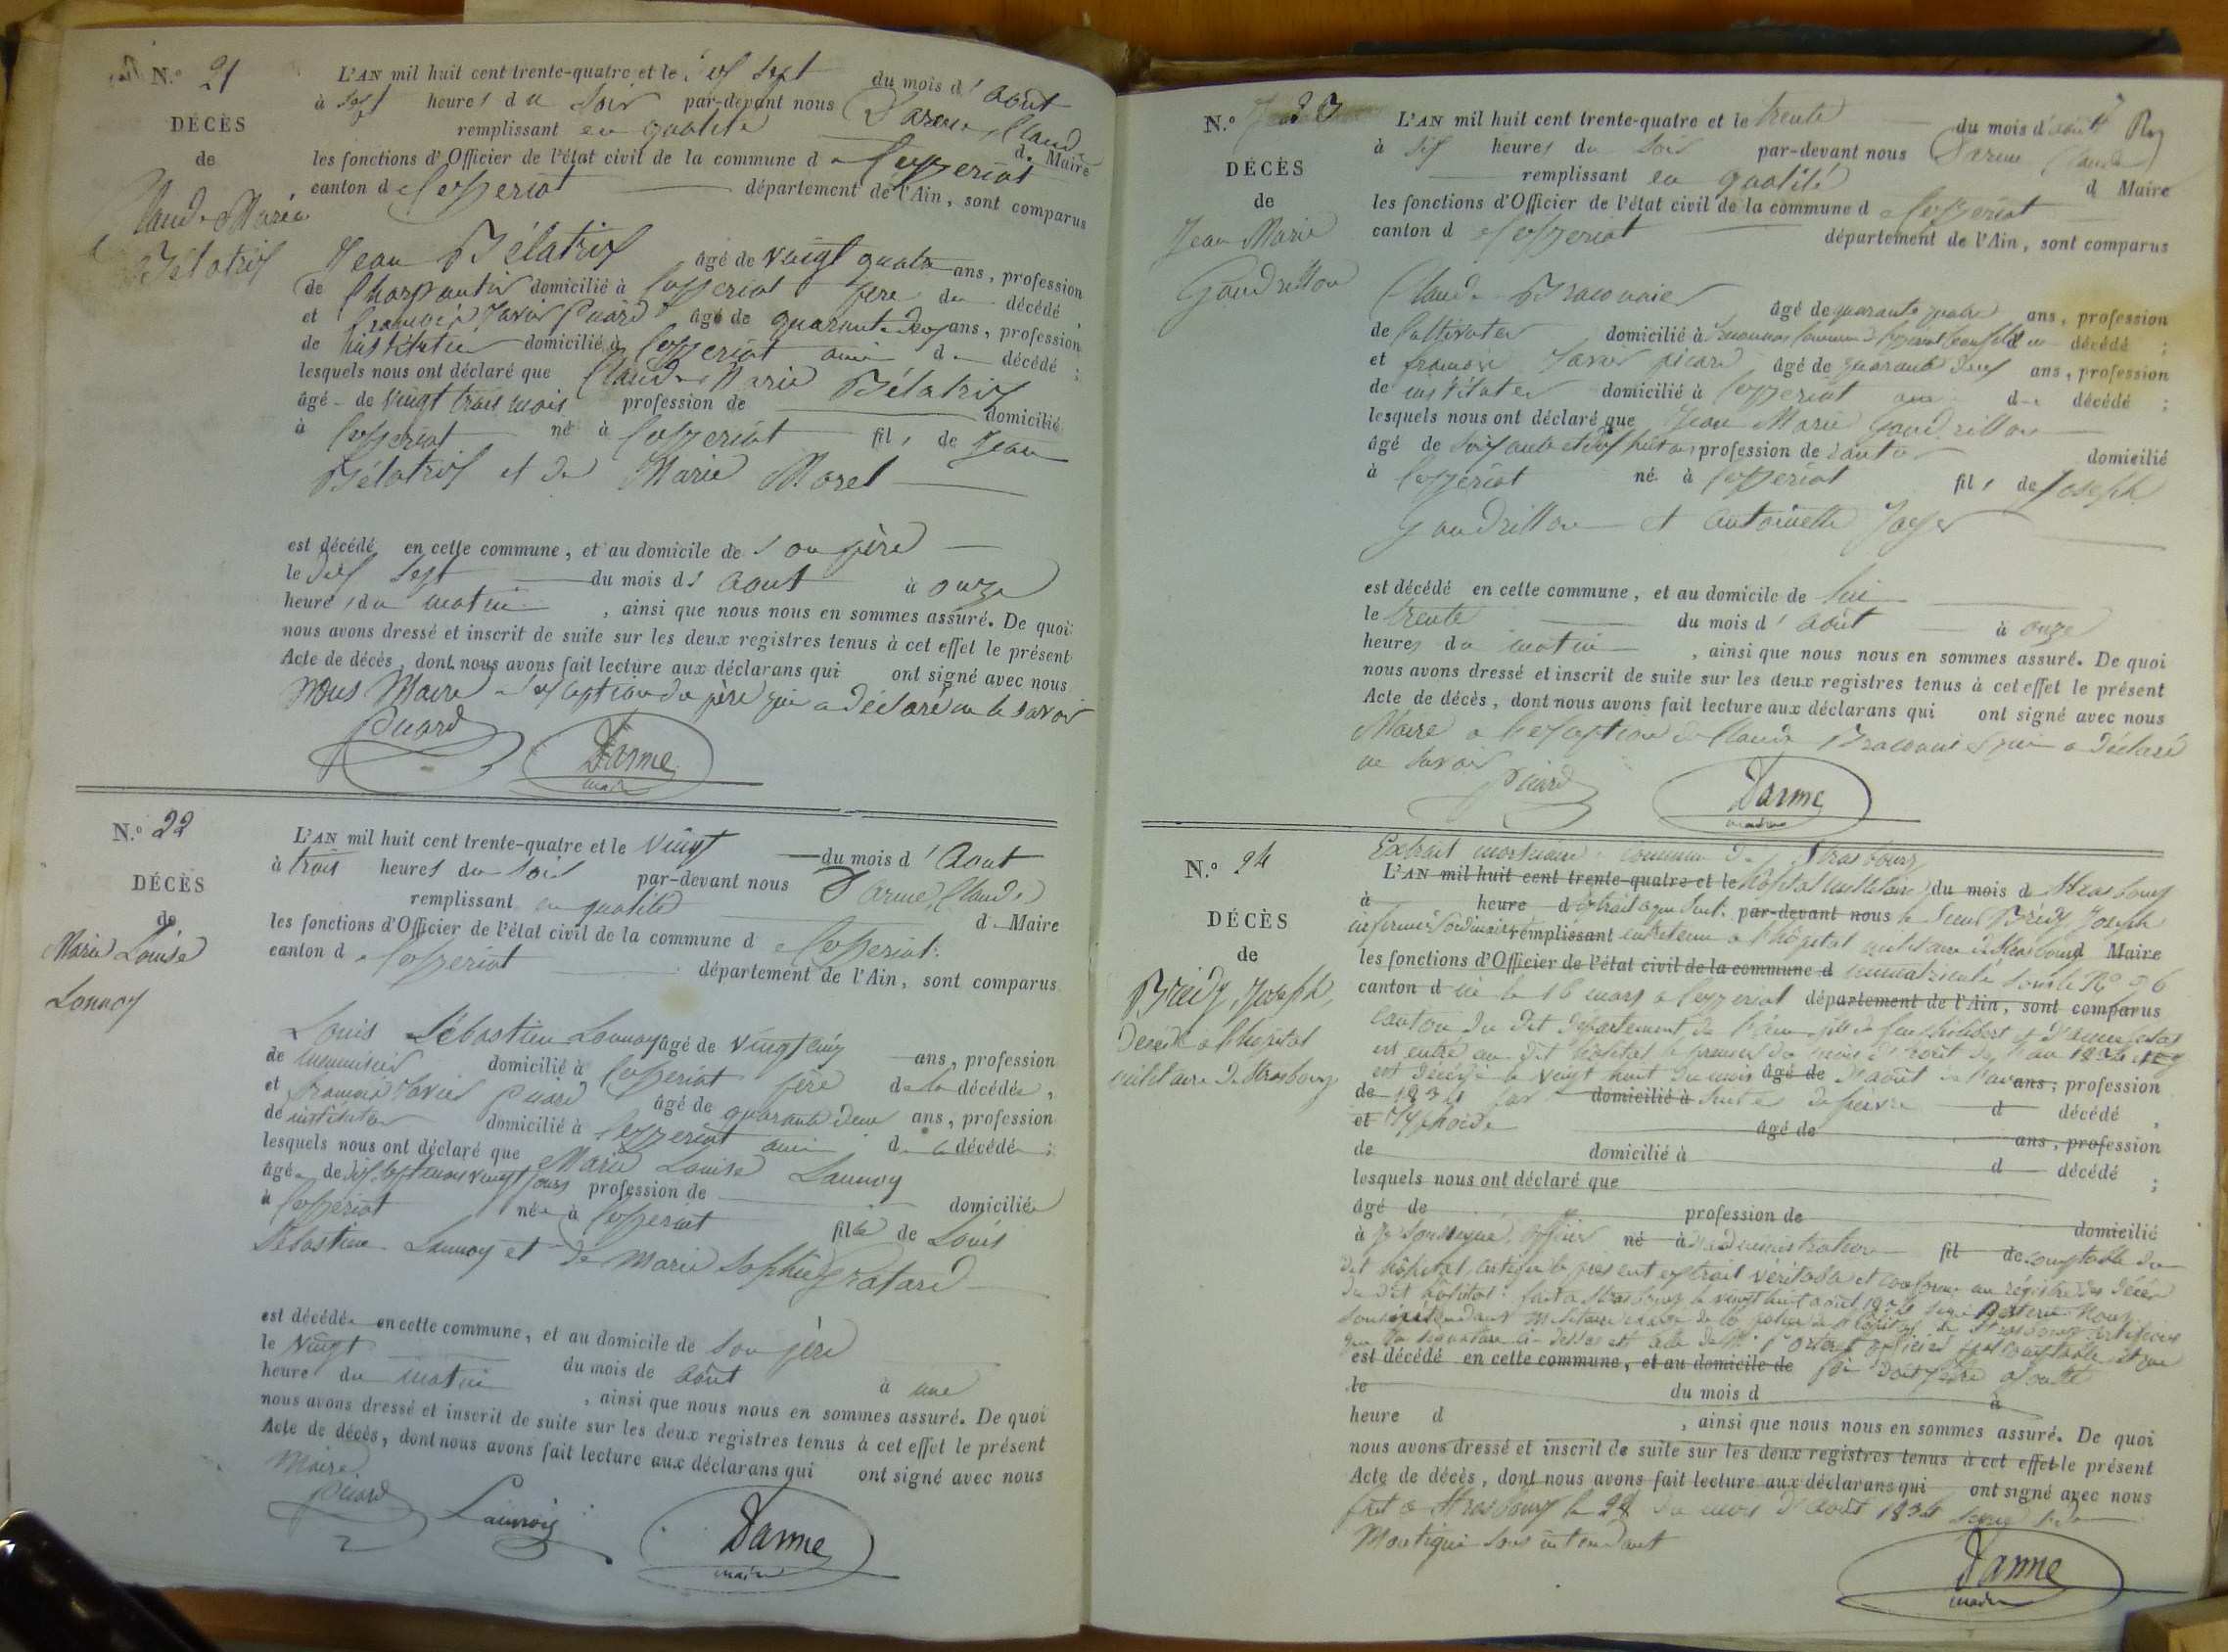 N.º 21
DÉCÈS
de
Claude Marie
Bélatrix
L'AN mil huit cent trente-quatre et le dix sept du mois d'Août
à sept heures du soir par-devant nous Darme Claude
remplissant en qualité de Maire
les fonctions d'Officier de l'état civil de la commune de Ceyzeriat
canton de Ceyzeriat département de l'Ain, sont comparus
Jean Bélatrix âgé de vingt quatre ans, profession
de Charpentier domicilié à Ceyzeriat père du décédé,
et françois Xavier Picard âgé de quarante deux ans, profession
de instituteur domicilié à Ceyzeriat ami du décédé ;
lesquels nous ont déclaré que Claude Marie Bélatrix
âgé de vingt trois mois profession de domicilié
à Ceyzeriat né à Ceyzeriat fils de Jean
Bélatrix et de Marie Morel
est décédé en cette commune, et au domicile de son père
le dix sept du mois d'Aout à onze
heures du matin , ainsi que nous nous en sommes assuré. De quoi
nous avons dressé et inscrit de suite sur les deux registres tenus à cet effet le présent
Acte de décès, dont nous avons fait lecture aux déclarans qui ont signé avec nous
nous Maire à l'exception du père qui a déclaré ne le savoir
Picard Darme
maire
N.º 22
DÉCÈS
de
Marie Louise
Launoy
L'AN mil huit cent trente-quatre et le vingt du mois d'Aout
à trois heures du soir par-devant nous Darme Claude
remplissant en qualité de Maire
les fonctions d'Officier de l'état civil de la commune de Ceyzeriat
canton de Ceyzeriat département de l'Ain, sont comparus
Louis Sébastien Launoy âgé de vingt cinq ans, profession
de menuisier domicilié à Ceyzeriat père de la décédée,
et françois Xavier Picard âgé de quarante deux ans, profession
de instituteur domicilié à Ceyzeriat ami de la décédée ;
lesquels nous ont déclaré que Marie Louise Launoy
âgée de dix sept mois vingt jours profession de domiciliée
à Ceyzeriat née à Ceyzeriat fille de Louis
Sébastien Launoy et de Marie Sophie
est décédée en cette commune, et au domicile de son père
le vingt du mois de Août à une
heure du matin , ainsi que nous nous en sommes assuré. De quoi
nous avons dressé et inscrit de suite sur les deux registres tenus à cet effet le présent
Acte de décès, dont nous avons fait lecture aux déclarans qui ont signé avec nous
Maire
Picard Launoy Darme
maire
N.º 23
DÉCÈS
de
Jean Marie
Gaudrillon
L'AN mil huit cent trente-quatre et le trente du mois d'août
à six heures du soir par-devant nous Darme Claude
remplissant en qualité d Maire
les fonctions d'Officier de l'état civil de la commune de Ceyzeriat
canton de Ceyzeriat département de l'Ain, sont comparus
Claude Braconnier âgé de quarante quatre ans, profession
de Cultivateur domicilié à commune de Ceyzeriat beau fils du décédé ;
et françois Xavier picard âgé de quarante deux ans, profession
de instituteur domicilié à Ceyzeriat ami du décédé ;
lesquels nous ont déclaré que Jean Marie Gaudrillon
âgé de soixante et dix huit ans profession de domicilié
à Ceyzériat né à Ceyzeriat fils de Joseph
Gaudrillon et antoinette
est décédé en cette commune, et au domicile de lui
le trente du mois d'août à onze
heures du matin , ainsi que nous nous en sommes assuré. De quoi
nous avons dressé et inscrit de suite sur les deux registres tenus à cet effet le présent
Acte de décès, dont nous avons fait lecture aux déclarans qui ont signé avec nous
Maire à l'exception de Claude Braconnier qui a déclaré
ne savoir
Picard Darme
maire
N.º 24
DÉCÈS
de
Bridy Joseph,
Décédé à l'hôpital
militaire de Strasbourg
Extrait mortuaire commune de Strasbourg
L'AN mil huit cent trente-quatre et le hôpital militaire du mois d Strasbourg
à heure d extrait par-devant nous le sieur Bridy Joseph
infirmier ordinaire remplissant entretenu à l'hôpital militaire de Strasbourg d Maire
les fonctions d'Officier de l'état civil de la commune d immatriculé sous le Nº 96
canton d né le 16 mars à Ceyzeriat département de l'Ain, sont comparus
canton du dit département de l'ain fils de feu philibert et d'anne
est entré au dit hôpital le premier du mois d'Août de l'an 1834
est décédé le vingt huit du mois âgé de d'août de l'an ans, profession
de 1834 par domicilié à suites de fièvre d décédé,
et typhoïde âgé de ans, profession
de domicilié à d décédé ;
lesquels nous ont déclaré que
âgé de profession de domicilié
à Je soussigné officier né à d'administration fil de comptable du
dit hôpital certifie le présent extrait véritable et conforme au régistre des décès
du dit hôpital. fait à Strasbourg le vingt huit août 1834 signé Nous
sous intendant militaire chargé de la police de l'hôpital de Strasbourg certifions
que la signature ci-dessus est celle de officier comptable et que
est décédé en cette commune, et au domicile de foi doit être ajoutée
le du mois d à
heure d , ainsi que nous nous en sommes assuré. De quoi
nous avons dressé et inscrit de suite sur les deux registres tenus à cet effet le présent
Acte de décès, dont nous avons fait lecture aux déclarans qui ont signé avec nous
fait à Strasbourg le 28 du mois d'août 1834 signé
Montigni sous intendant
Darme
maire